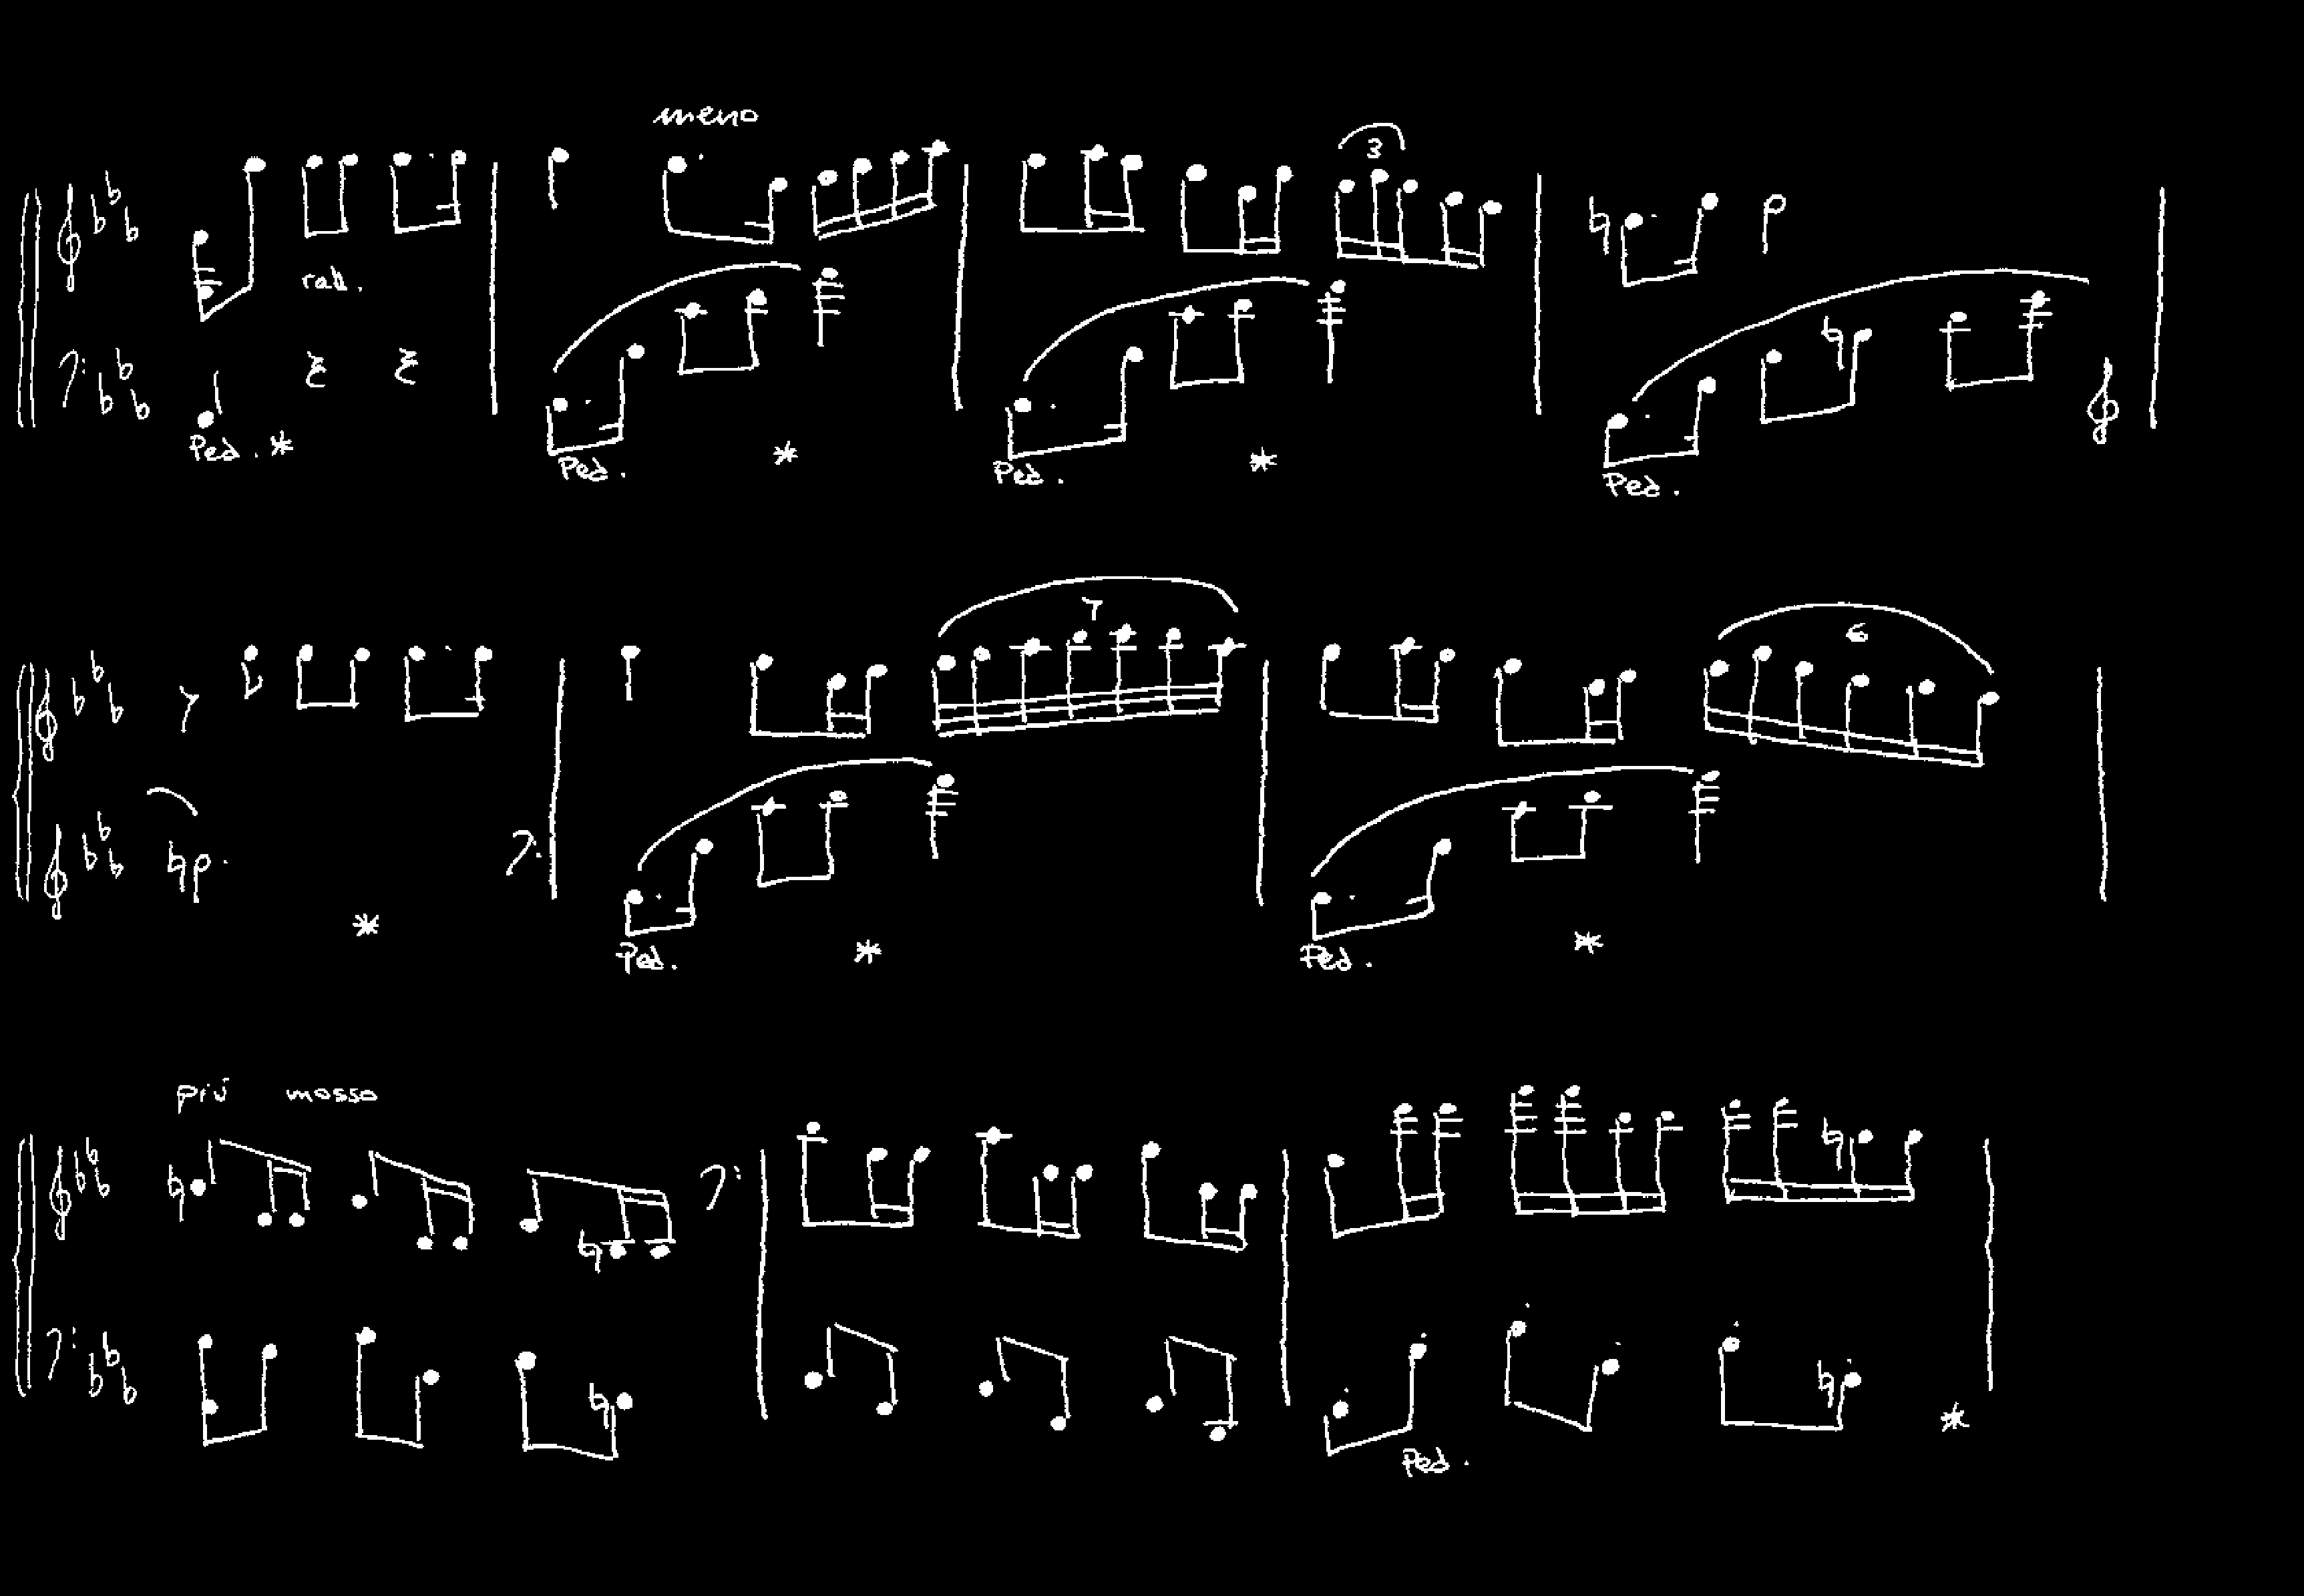 meno
3
rall.
Ped. *
Ped. *
Ped. *
Ped.
7
6
*
Ped. *
Ped. *
più mosso
Ped. *